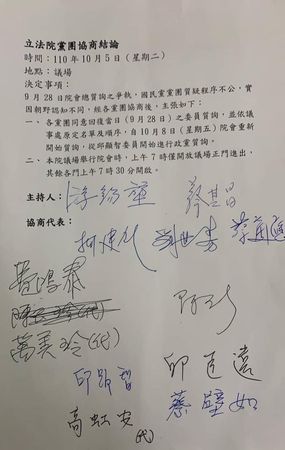 立法院黨團協商結論
時間：110年10月5日（星期二）
地點：議場
決定事項：
9月28日院會總質詢之爭執，國民黨黨團質疑程序不公，實
因朝野認知不同，經各黨團協商後，主張如下：
一、各黨團同意回復當日（9月28日）之委員質詢，並依議
事處原定名單及順序，自10月8日（星期五）院會重新
開始質詢，從邱顯智委員開始進行政黨質詢。
二、本院議場舉行院會時，上午7時僅開放議場正門進出，
其餘各門上午7時30分開啟。
主持人：游錫堃 蔡其昌
協商代表：柯建銘 劉世芳
費鴻泰
萬美玲(代)
邱臣遠
邱顯智
蔡壁如
高虹安
(代)